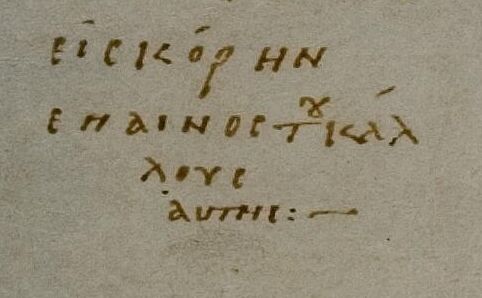 εἰς κόρην
επαινος τȣ κάλ
λους
αυτης :—